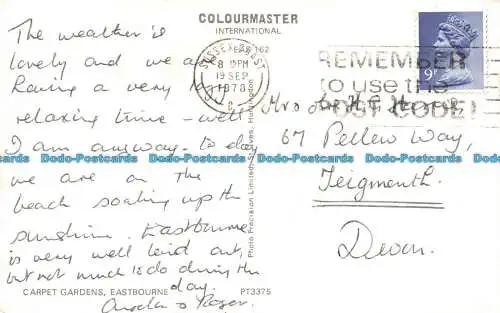 The weather is
lovely and we are
Having a very
relaxing time - well
I am anyway - to day
we are on the
beach soaking up the
sunshine. Eastbourne
is very well laid out,
but not much to do during the
day.
Angela & Roger.
CARPET GARDENS, EASTBOURNE
PT3375
COLOURMASTER
INTERNATIONAL
Photo Precision Limited, St. Ives, Huntingdon
SUSSEX COAST
8 PM
19 SEP
1978
C
REMEMBER
to use the
POST CODE!
9P
Mr & Mrs H
67 Pellew Way,
Teignmouth.
Devon.
Dodo-Postcards Dodo-Postcards Dodo-Postcards Dodo-Postcards Dodo-Postcards